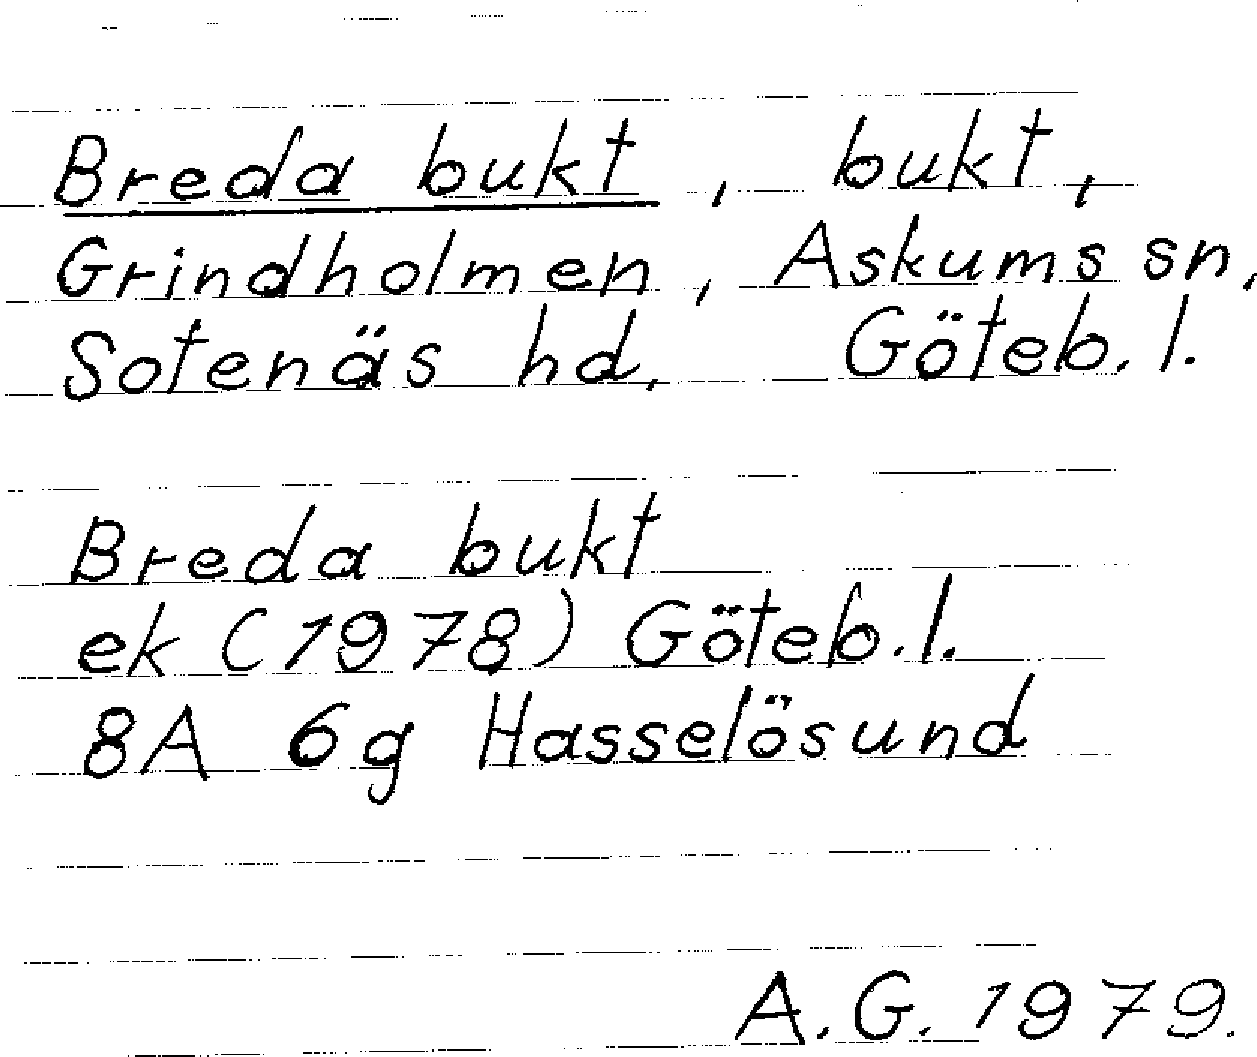 Breda bukt, bukt,
Grindholmen, Askums sn,
Sotenäs hd, Göteb. l.
Breda bukt
ek (1978) Göteb. l.
8A 6g Hasselösund
A. G. 1979.